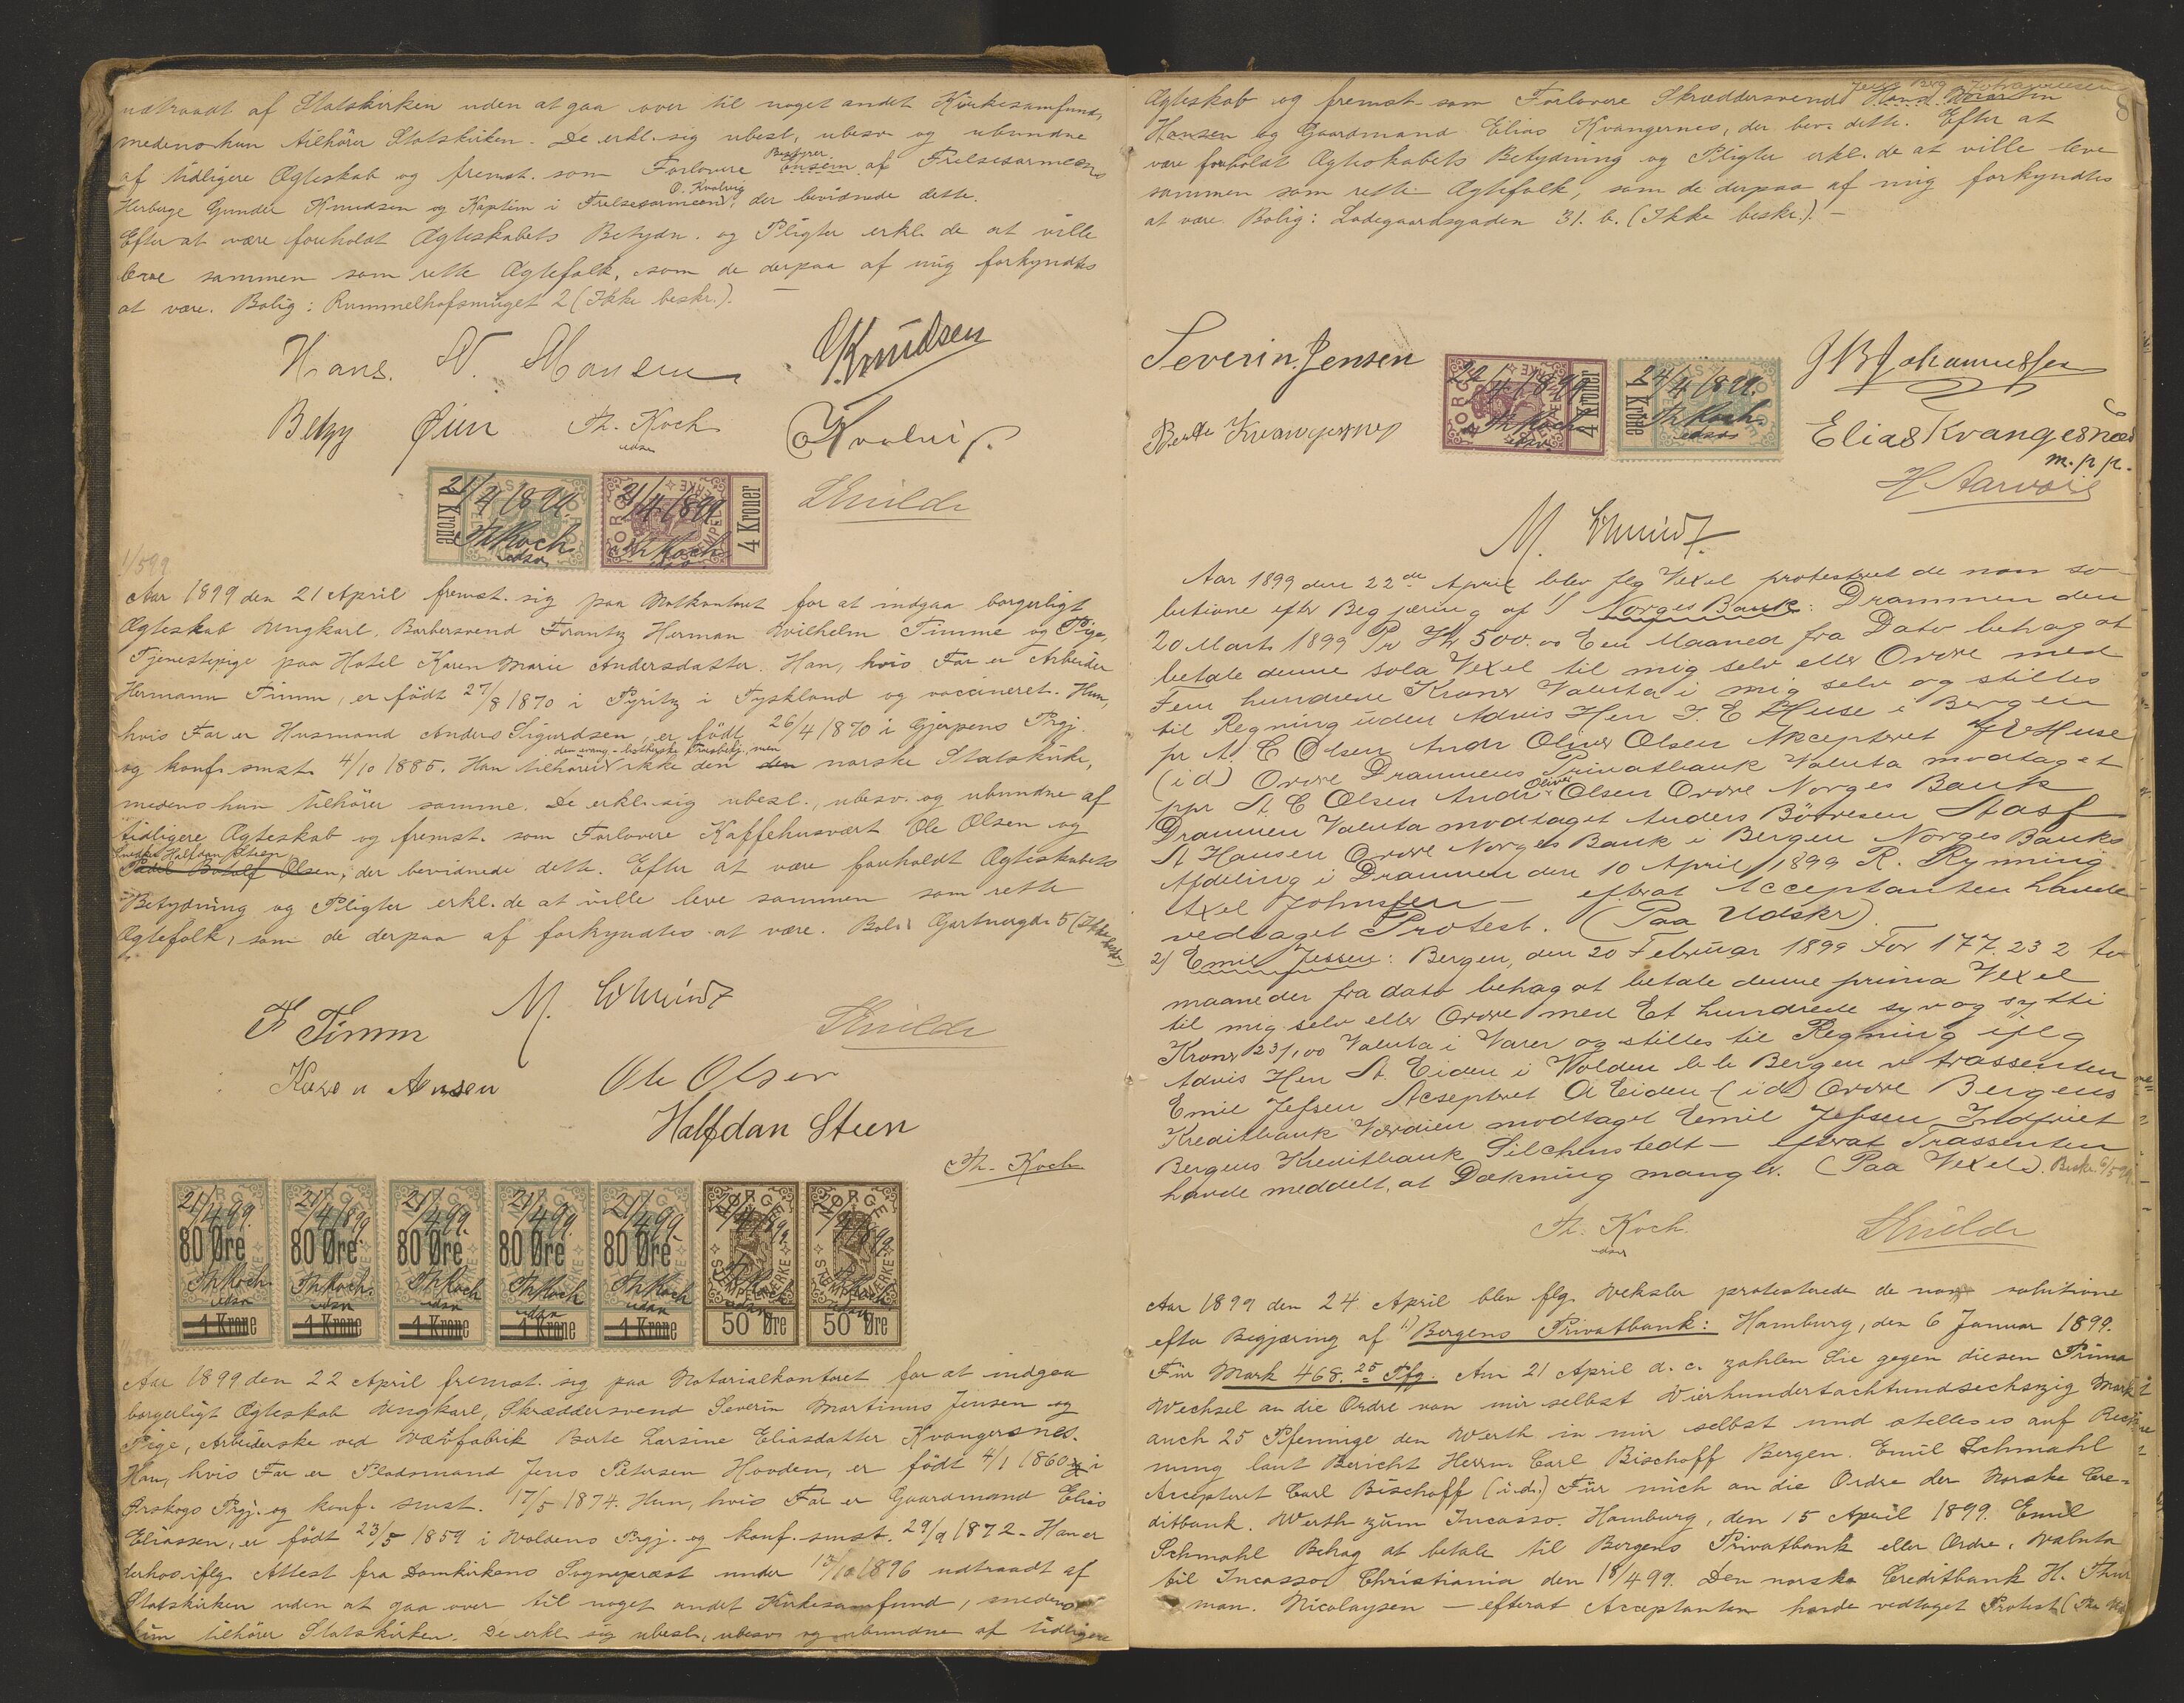 udtraadt af Statskirken uden at gaa over til noget andet Kirkesamfund,
medens hun tilhører Statskirken. De erkl. sig ubesl., ubesv. og ubundne
Bestyrer
af tidligere Ægteskab og fremst. som Forlovere af Frelsesarmeens
O. Kvalvig
Herberge Gunder Knudsen og Kaptein i Frelsesarmeen, der bevidnede dette.
Efter at være foreholdt Ægteskabets Betydn. og Pligter erkl. de at ville
leve sammen som rette Ægtefolk, som de derpaa af mig forkyndtes
at være. Bolig: Rummelhofsmuget 2 (Ikke beskr.). —
Hans. N. Monsen
G. Knudsen
Betzy Øien Th. Koch
udsn
O Kvalvig.
1 Krone 21/4 1899. Th Koch udsn
21/4 1899 Th Koch 4 Kroner
Skuilde
Aar 1899 den 21 April fremst. sig paa Notkontoret for at indgaa borgerligt
Ægteskab Ungkarl, Barbersvend Frantz Herman Wilhelm Timme og Pige,
Tjenestepige paa Hotel Karen Marie Andersdatter. Han, hvis Far er Arbeider
Hermann Timm, er født 27/8 1870 i Pyritz i Tyskland og vaccineret. Hun,
hvis Far er Husmand Anders Sigurdsen, er født 26/4 1870 i Gjerpens Prgj.
og konf. smst. 4/10 1885. Han tilhører ikke den den norske Statskirke,
medens hun tilhører samme. De erkl. sig ubesl., ubesv. og ubundne af
tidligere Ægteskab og fremst. som Forlovere Kaffehusvært Ole Olsen og
Halfdan Steen
Olsen, der bevidnede dette. Efter at være foreholdt Ægteskabets
Betydning og Pligter erkl. de at ville leve sammen som rette
Ægtefolk, som de derpaa af forkyndtes at være. Bolig Gartnergd. 5 (Ikke beskr.)
F Timm
M. Schmidt
Skuilde
Karen Ansen
Ole Olsen
Halfdan Steen
Th. Koch
21/4 99. 80 Øre Th Koch. udsn 1 Krone
21/4 1899. 80 Øre Th Koch. udsn 1 Krone
21/4 99. 80 Øre Th Koch udsn 1 Krone
21/4 99. 80 Øre Th Koch udsn 1 Krone
21/4 99. 80 Øre Th Koch udsn 1 Krone
NORGE STEMPELMERKE 50 Øre
NORGE STEMPELMERKE 50 Øre
Aar 1899 den 22 April fremst. sig paa Notarialkontoret for at indgaa
borgerligt Ægteskab Ungkarl, Skræddersvend Severin Martinus Jensen og
Pige, Arbeiderske ved Vævfabrik Berte Larsine Eliasdatter Kvangersnes.
Han, hvis Far er Pladsmand Jens Petersen Hovden, er født 4/1 1860 i
Ørskogs Prgj. og konf. smst. 17/5 1874. Hun, hvis Far er Gaardmand Elias
Eliassen, er født 23/5 1859 i Voldens Prgj. og konf. smst. 29/9 1872. Han er
derhos iflg. Attest fra Domkirkens Sognepræst under 13/10 1896 udtraadt af
Statskirken uden at gaa over til noget andet Kirkesamfund, medens
hun tilhører Statskirken. De erkl. sig ubesl., ubesv. og ubundne af tidligere
8
Johannessen
Ægteskab og fremst. som Forlovere Skræddersvend
Hansen og Gaardmand Elias Kvangernes, der bev. dette. Efter at
være foreholdt Ægteskabets Betydning og Pligter erkl. de at ville leve
sammen som rette Ægtefolk, som de derpaa af mig forkyndtes
at være. Bolig: Ladegaardsgaden 31. b. (Ikke beskr.). —
Severin. Jensen
4 Kroner
24/4 1899. Th Koch. udsn 1 Krone
J B Johannessen
Berte Kvangersnes
Elias Kvangesnæs
m. p. p.
H Aarvoig
M. Schmidt
Aar 1899 den 22de April blev flg Vexel protesteret de non so-
lutione efter Begjæring af 1) Norges Bank: Drammen den
20 Marts 1899 Pr Kr 500.00 Een Maaned fra Dato behag at
betale denne sola Vexel til mig selv eller Ordre med
Fem hundrede Kroner Valuta i mig selv og stilles
til Regning uden Advis Herr J. E Huse i Bergen
pr A. C Olsen Andr Oliver Olsen Akcepteret J E Huse
(id) Ordre Drammens Privatbank Valuta modtaget
ppr A. C Olsen Andr Oliver Olsen Ordre Norges Bank
Drammen Valuta modtaget Anders Bötvesen Aasf
A Hansen Ordre Norges Bank i Bergen Norges Banks
Afdeling i Drammen den 10 April 1899 R. Rynning
Axel Johnsen — efterat Acceptanten havde
vedtaget Protest. (Paa Udskr)
2) Emil Jessen: Bergen, den 20 Februar 1899 For 177. 23 2 to
maaneder fra dato behag at betale denne prima Vexel
til mig selv eller Ordre med Et hundrede syv og sytti
Kroner 23/100 Valuta i Varer og stilles til Regning iflg
Advis Herr A. Eiden i Volden Bergen trassenten
Emil Jessen Accepteret A Eiden (id) Ordre Bergens
Kreditbank Værdien modtaget Emil Jessen Indfriet
Bergens Kreditbank Silchenstedt — efterat Trassenten
havde meddelt, at Dækning mangler. (Paa Vexel).
Th. Koch.
udsn
Skuilde
Aar 1899 den 24 April blev flg. Veksler protesterede de non solutione
efter Begjæring af 1) Bergens Privatbank: Hamburg, den 6 Januar 1899.
Für Mark 468. 25 Pfg. Am 21 April d. c. zahlen Sie gegen diesen Prima
Wechsel an die Ordre von mir selbst Vierhundertachtundsechszig Mark
auch 25 Pfennige den Werth in mir selbst und stellen es auf Rech-
nung laut Bericht Herrn Carl Bischoff Bergen. Emil Schmahl
Accepteret Carl Bischoff (i.d.) Für mich an die Ordre der Norske Cre-
ditbank. Werth zum Incasso. Hamburg, den 15 April 1899. Emil
Schmahl Behag at betale til Bergens Privatbank eller Ordre, Valuta
til Incasso Christiania den 18/4 99. Den norske Creditbank H. Thur
man. Nicolaysen — efterat Acceptanten havde vedtaget Protest